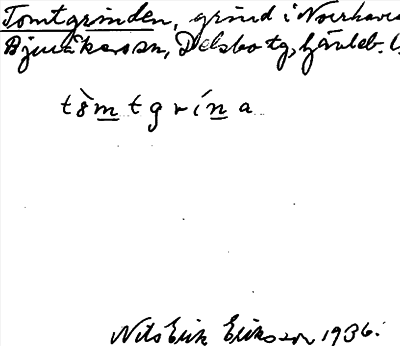 Tomtgrinden, grind i Norrhavra
Bjuråkers sn, Delsbo tg, Gävleb. l.
tò̀mtgrína
Nils Erik Eriksson 1936.